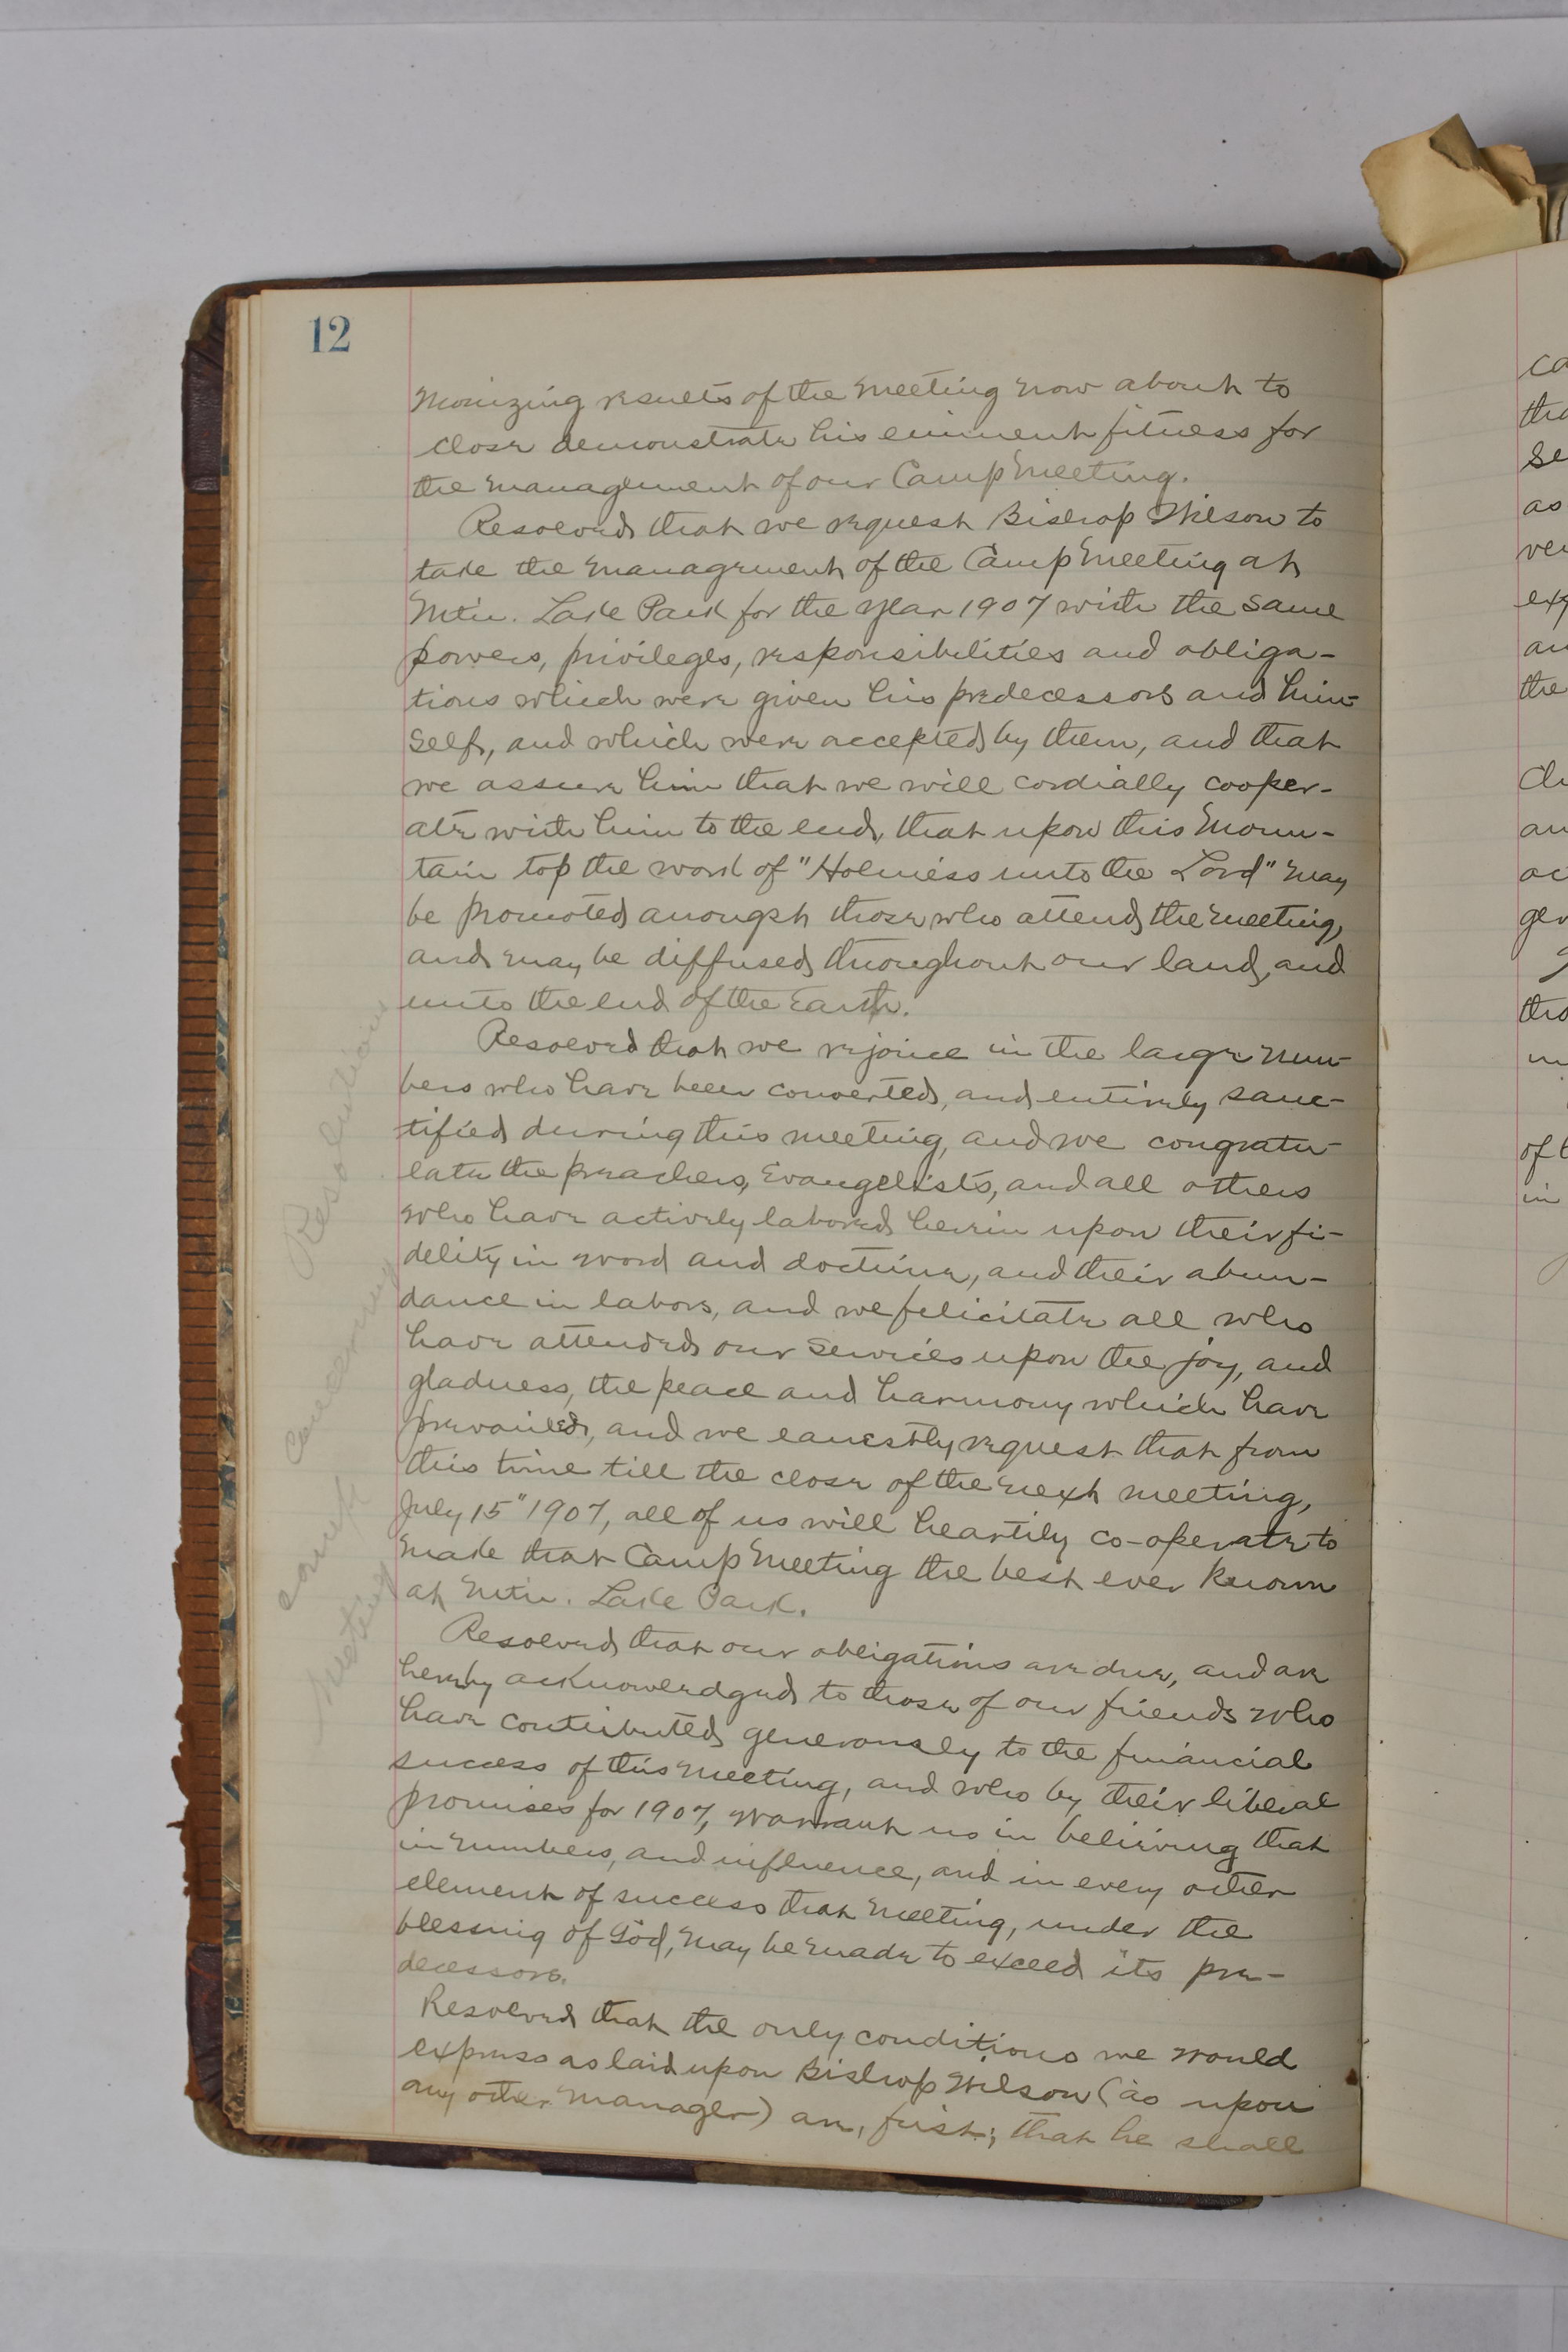 12
monizing results of the meeting now about to
close demonstrate his eminent fitness for
the management of our Camp Meeting.
Resolved that we request Bishop Wilson to
take the management of the Camp Meeting at
Mtn. Lake Park for the year 1907 with the same
powers, privileges, responsibilities and obliga-
tions which were given his predecessors and him-
self, and which were accepted by them, and that
we assure him that we will cordially cooper-
ate with him to the end, that upon this Moun-
tain top the work of "Holiness unto the Lord" may
be promoted amongst those who attend the meeting,
and may be diffused throughout our land, and
unto the end of the Earth.
Resolved that we rejoice in the large num-
bers who have been converted, and entirely sanc-
tified during this meeting, and we congratu-
late the preachers, Evangelists, and all others
who have actively labored herein upon their fi-
delity in word and doctrine, and their abun-
dance in labors, and we felicitate all who
have attended our services upon the joy, and
gladness, the peace and harmony which have
prevailed, and we earnestly request that from
this time till the close of the next meeting,
July 15" 1907, all of us will heartily co-operate to
make that Camp Meeting the best ever known
at Mtn. Lake Park.
Resolved that our obligations are due, and are
hereby acknowledged to those of our friends who
have contributed generously to the financial
success of this meeting, and who by their liberal
promises for 1907, warrant us in believing that
in numbers, and influence, and in every other
element of success that meeting, under the
blessing of God, may be made to exceed its pre-
decessors.
Resolved that the only conditions we would
express as laid upon Bishop Wilson (as upon
any other manager) are, first; that he shall
Resolutions
concerning
camp
meeting